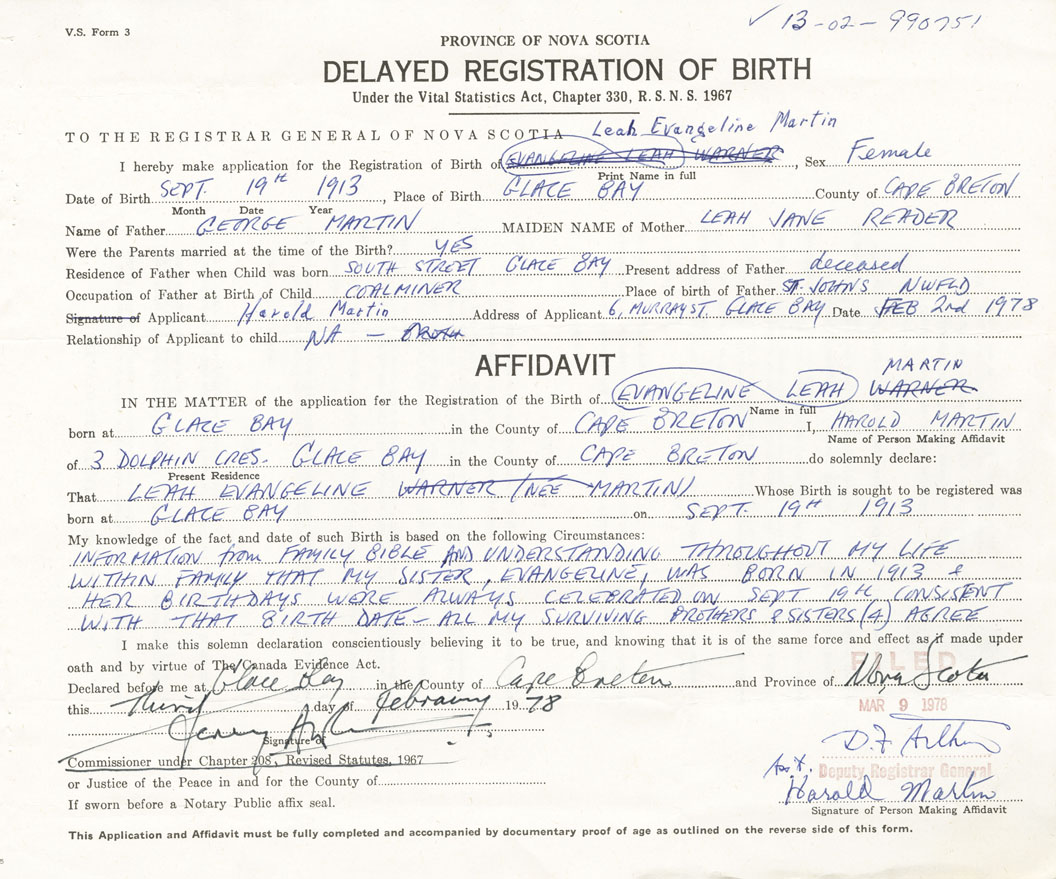 V.S. Form 3
✓ 13-02-990751
PROVINCE OF NOVA SCOTIA
DELAYED REGISTRATION OF BIRTH
Under the Vital Statistics Act, Chapter 330, R. S. N. S. 1967
TO THE REGISTRAR GENERAL OF NOVA SCOTIA Leah Evangeline Martin
I hereby make application for the Registration of Birth of EVANGELINE LEAH WARNER, Sex Female
Print Name in full
Date of Birth SEPT. 19TH 1913, Place of Birth GLACE BAY County of CAPE BRETON
Month Date Year
Name of Father GEORGE MARTIN MAIDEN NAME of Mother LEAH JANE READER
Were the Parents married at the time of the Birth? YES
Residence of Father when Child was born SOUTH STREET GLACE BAY Present address of Father deceased
Occupation of Father at Birth of Child COALMINER Place of birth of Father ST. JOHNS NWFLD
Signature of Applicant Harold Martin Address of Applicant 6, MURRAY ST. GLACE BAY Date FEB 2nd 1978
Relationship of Applicant to child NA —
AFFIDAVIT
MARTIN
IN THE MATTER of the application for the Registration of the Birth of EVANGELINE LEAH WARNER
Name in full
born at GLACE BAY in the County of CAPE BRETON I, HAROLD MARTIN
Name of Person Making Affidavit
of 3 DOLPHIN CRES. GLACE BAY in the County of CAPE BRETON do solemnly declare:
Present Residence
That LEAH EVANGELINE WARNER (NEE MARTIN) Whose Birth is sought to be registered was
born at GLACE BAY on SEPT. 19TH 1913
My knowledge of the fact, and date of such Birth is based on the following Circumstances:
INFORMATION from FAMILY BIBLE AND UNDERSTANDING THROUGHOUT MY LIFE
WITHIN FAMILY THAT MY SISTER, EVANGELINE, WAS BORN IN 1913 &
HER BIRTHDAYS WERE ALWAYS CELEBRATED ON SEPT 19TH CONSISTENT
WITH THAT BIRTH DATE - ALL MY SURVIVING BROTHERS & SISTERS (4) AGREE
I make this solemn declaration conscientiously believing it to be true, and knowing that it is of the same force and effect as if made under
oath and by virtue of The Canada Evidence Act.
FILED
Declared before me at Glace Bay in the County of Cape Breton and Province of Nova Scotia
this Third day of February 1978
MAR 9 1978
Signature of
Commissioner under Chapter 208, Revised Statutes, 1967
Ass't. Deputy Registrar General
or Justice of the Peace in and for the County of
Harold Martin
Signature of Person Making Affidavit
If sworn before a Notary Public affix seal.
This Application and Affidavit must be fully completed and accompanied by documentary proof of age as outlined on the reverse side of this form.